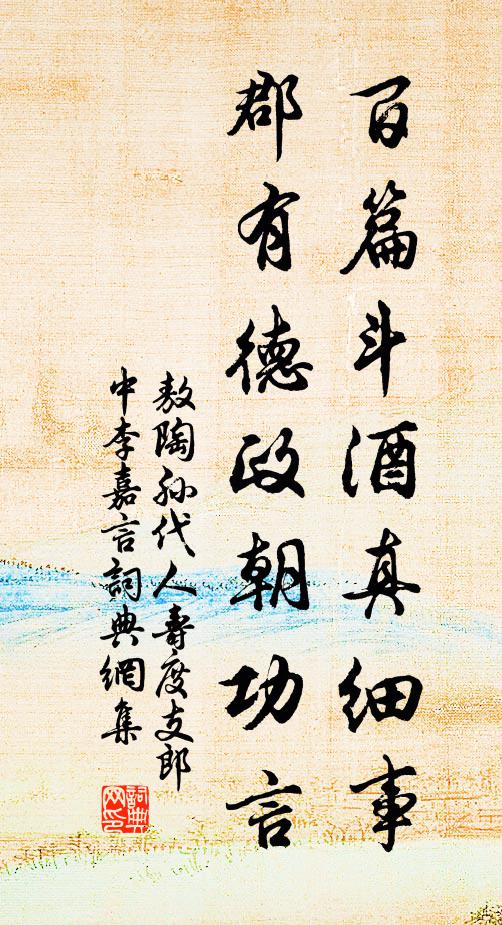 百篇斗酒真细事
郡有德政朝功言
敖陶孙代人寿度支郎
中李嘉言詞典網集
詞典
网印